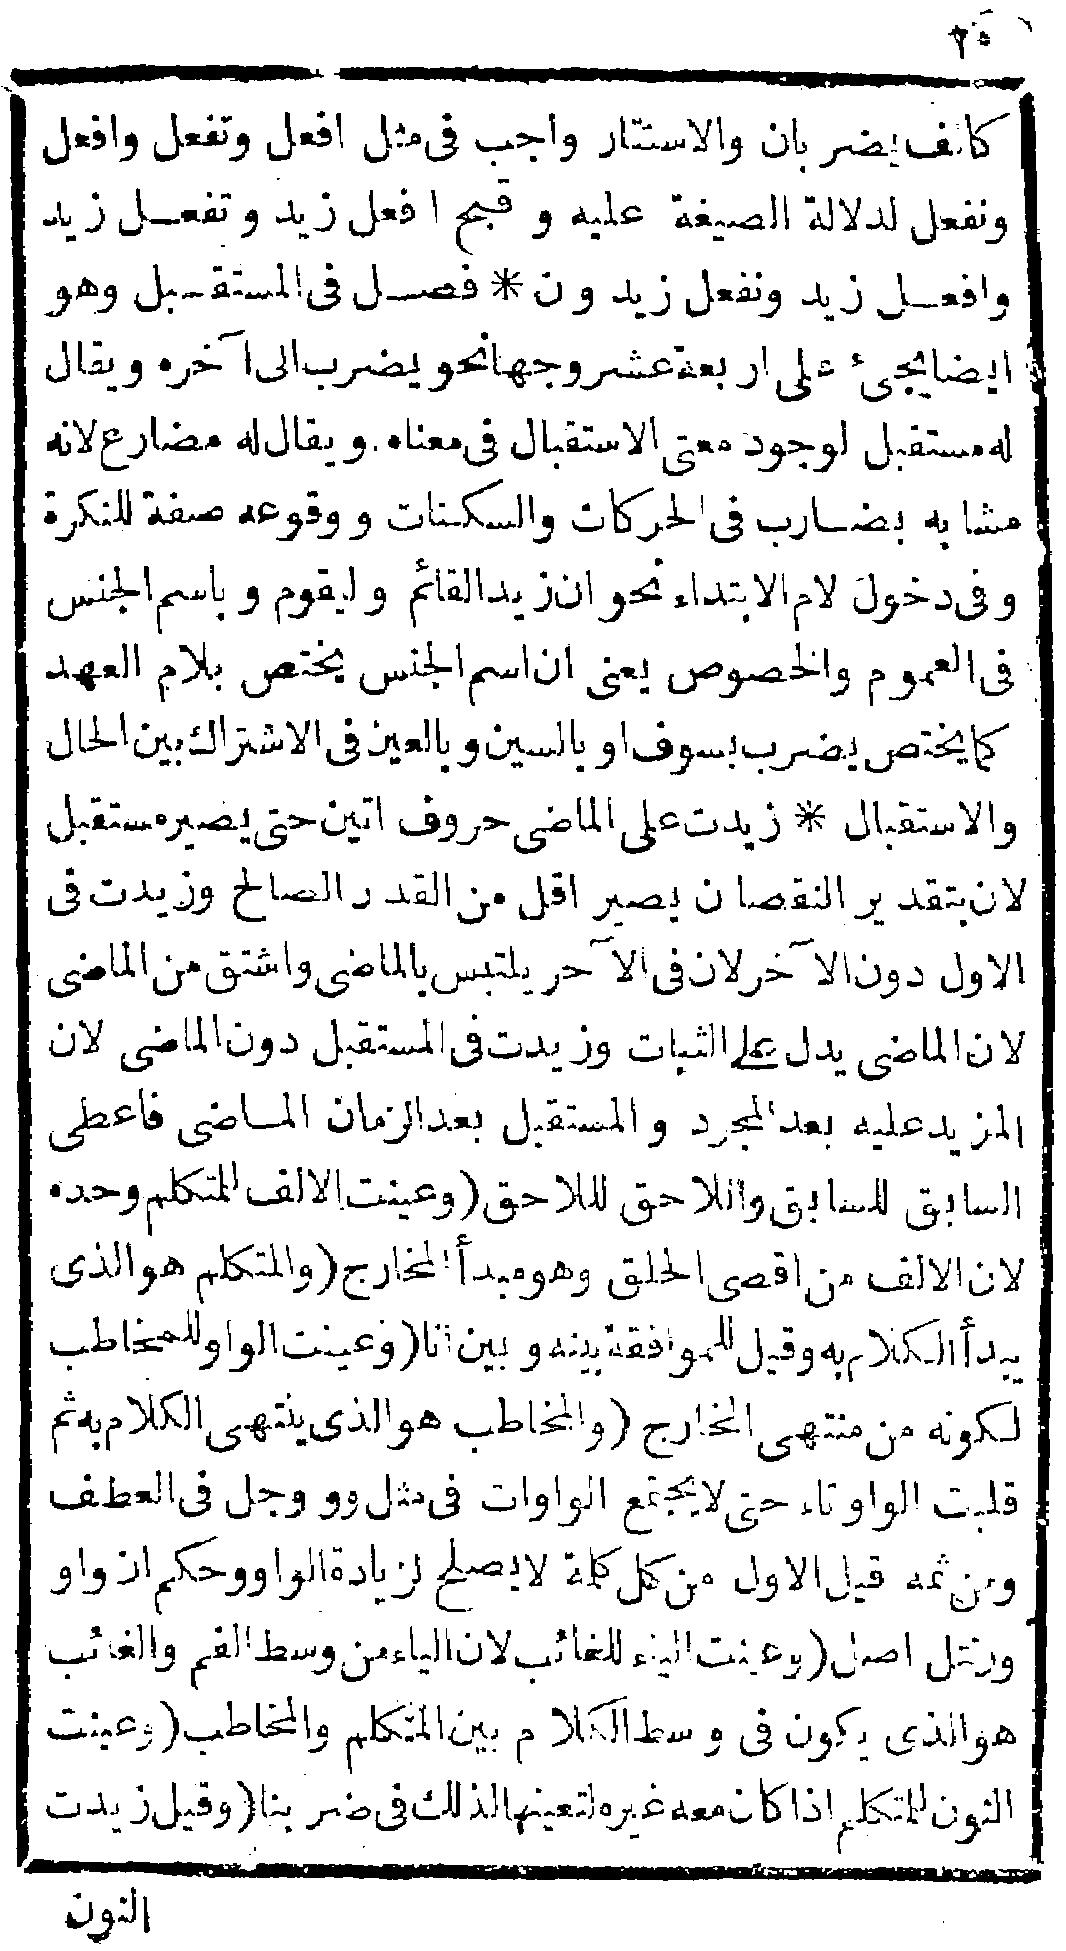 ٢٥
كالف يضربان والاستتار واجب فى مثل افعل وتفعل وافعل
ونفعل لدلالة الصيغة عليه و قبح افعل زيد و تفعل زيد
وافعل زيد ونفعل زيدون * فصل فى المستقبل وهو
ايضا يجئ على اربعة عشر وجها نحو يضرب الى آخره ويقال
له مستقبل لوجود معنى الاستقبال فى معناه . ويقال له مضارع لانه
مشابه بضارب فى الحركات والسكنات ووقوعه صفة للنكرة
وفى دخول لام الابتداء نحو ان زيد القائم وليقوم وباسم الجنس
فى العموم والخصوص يعنى ان اسم الجنس يختص بلام العهد
كما يختص يضرب بسوف او بالسين وبالعين فى الاشتراك بين الحال
والاستقبال * زيدت على الماضى حروف اتين حتى يصير مستقبل
لان بتقدير النقصان يصير اقل من القدر الصالح وزيدت فى
الاول دون الآخر لان فى الآحر يلتبس بالماضى واشتق من الماضى
لان الماضى يدل على الثبات وزيدت فى المستقبل دون الماضى لان
المزيد عليه بعد المجرد والمستقبل بعد الزمان الماضى فاعطى
السابق للسابق واللاحق لللاحق (وعينت الالف للمتكلم وحده
لان الالف من اقصى الحلق وهو مبدأ المخارج (والمتكلم هو الذى
يبدأ الكلام به وقيل للموافقة بينه وبين انا (وعينت الواو للمخاطب
لكونه من منتهى المخارج (والمخاطب هو الذى ينتهى الكلام به ثم
قلبت الواو تاء حتى لا يجتمع الواوات فى مثل وووجل فى العطف
ومن ثمه قيل الاول من كل كلمة لا يصلح لزيادة الواو وحكم ان واو
ورنتل اصل (وعينت الياء للغائب لان الياء من وسط الفم والغائب
هو الذى يكون فى وسط الكلام بين المتكلم والمخاطب (وعينت
النون للمتكلم اذا كان معه غيره لتعينها لذلك فى ضربنا (وقيل زيدت
النون